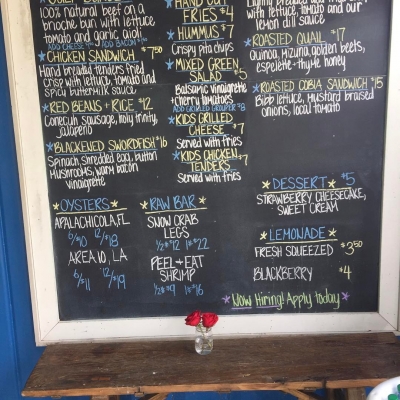 100% natural beef on a
brioche bun with lettuce,
tomato and garlic aioli
ADD CHEESE ADD BACON
CHICKEN SANDWICH $7.50
Hand breaded tenders fried
crisp with lettuce, tomato and
spicy buttermilk sauce
RED BEANS + RICE $12
Conecuh sausage, holy trinity,
jalapeño
BLACKENED SWORDFISH $16
Spinach, shredded egg, button
mushrooms, warm bacon
vinaigrette
OYSTERS
APALACHICOLA, FL
6/$10 12/$18
AREA 10, LA
6/$11 12/$19
HAND CUT
FRIES $4
HUMMUS $7
Crispy pita chips
MIXED GREEN
SALAD $5
Balsamic vinaigrette
+ cherry tomatoes
ADD GRILLED GROUPER $8
KIDS GRILLED
CHEESE $7
Served with fries
KIDS CHICKEN
TENDERS $7
Served with fries
RAW BAR
SNOW CRAB
LEGS
½ $12 1 $22
PEEL + EAT
SHRIMP
½ $9 1 $16
lettuce, tomato and our
lemon dill sauce
ROASTED QUAIL $17
Quinoa, mizuna, golden beets,
espelette-thyme honey
ROASTED COBIA SANDWICH $15
Bibb lettuce, mustard braised
onions, local tomato
DESSERT $5
STRAWBERRY CHEESECAKE,
SWEET CREAM
LEMONADE
FRESH SQUEEZED $3.50
BLACKBERRY $4
Now Hiring! Apply today